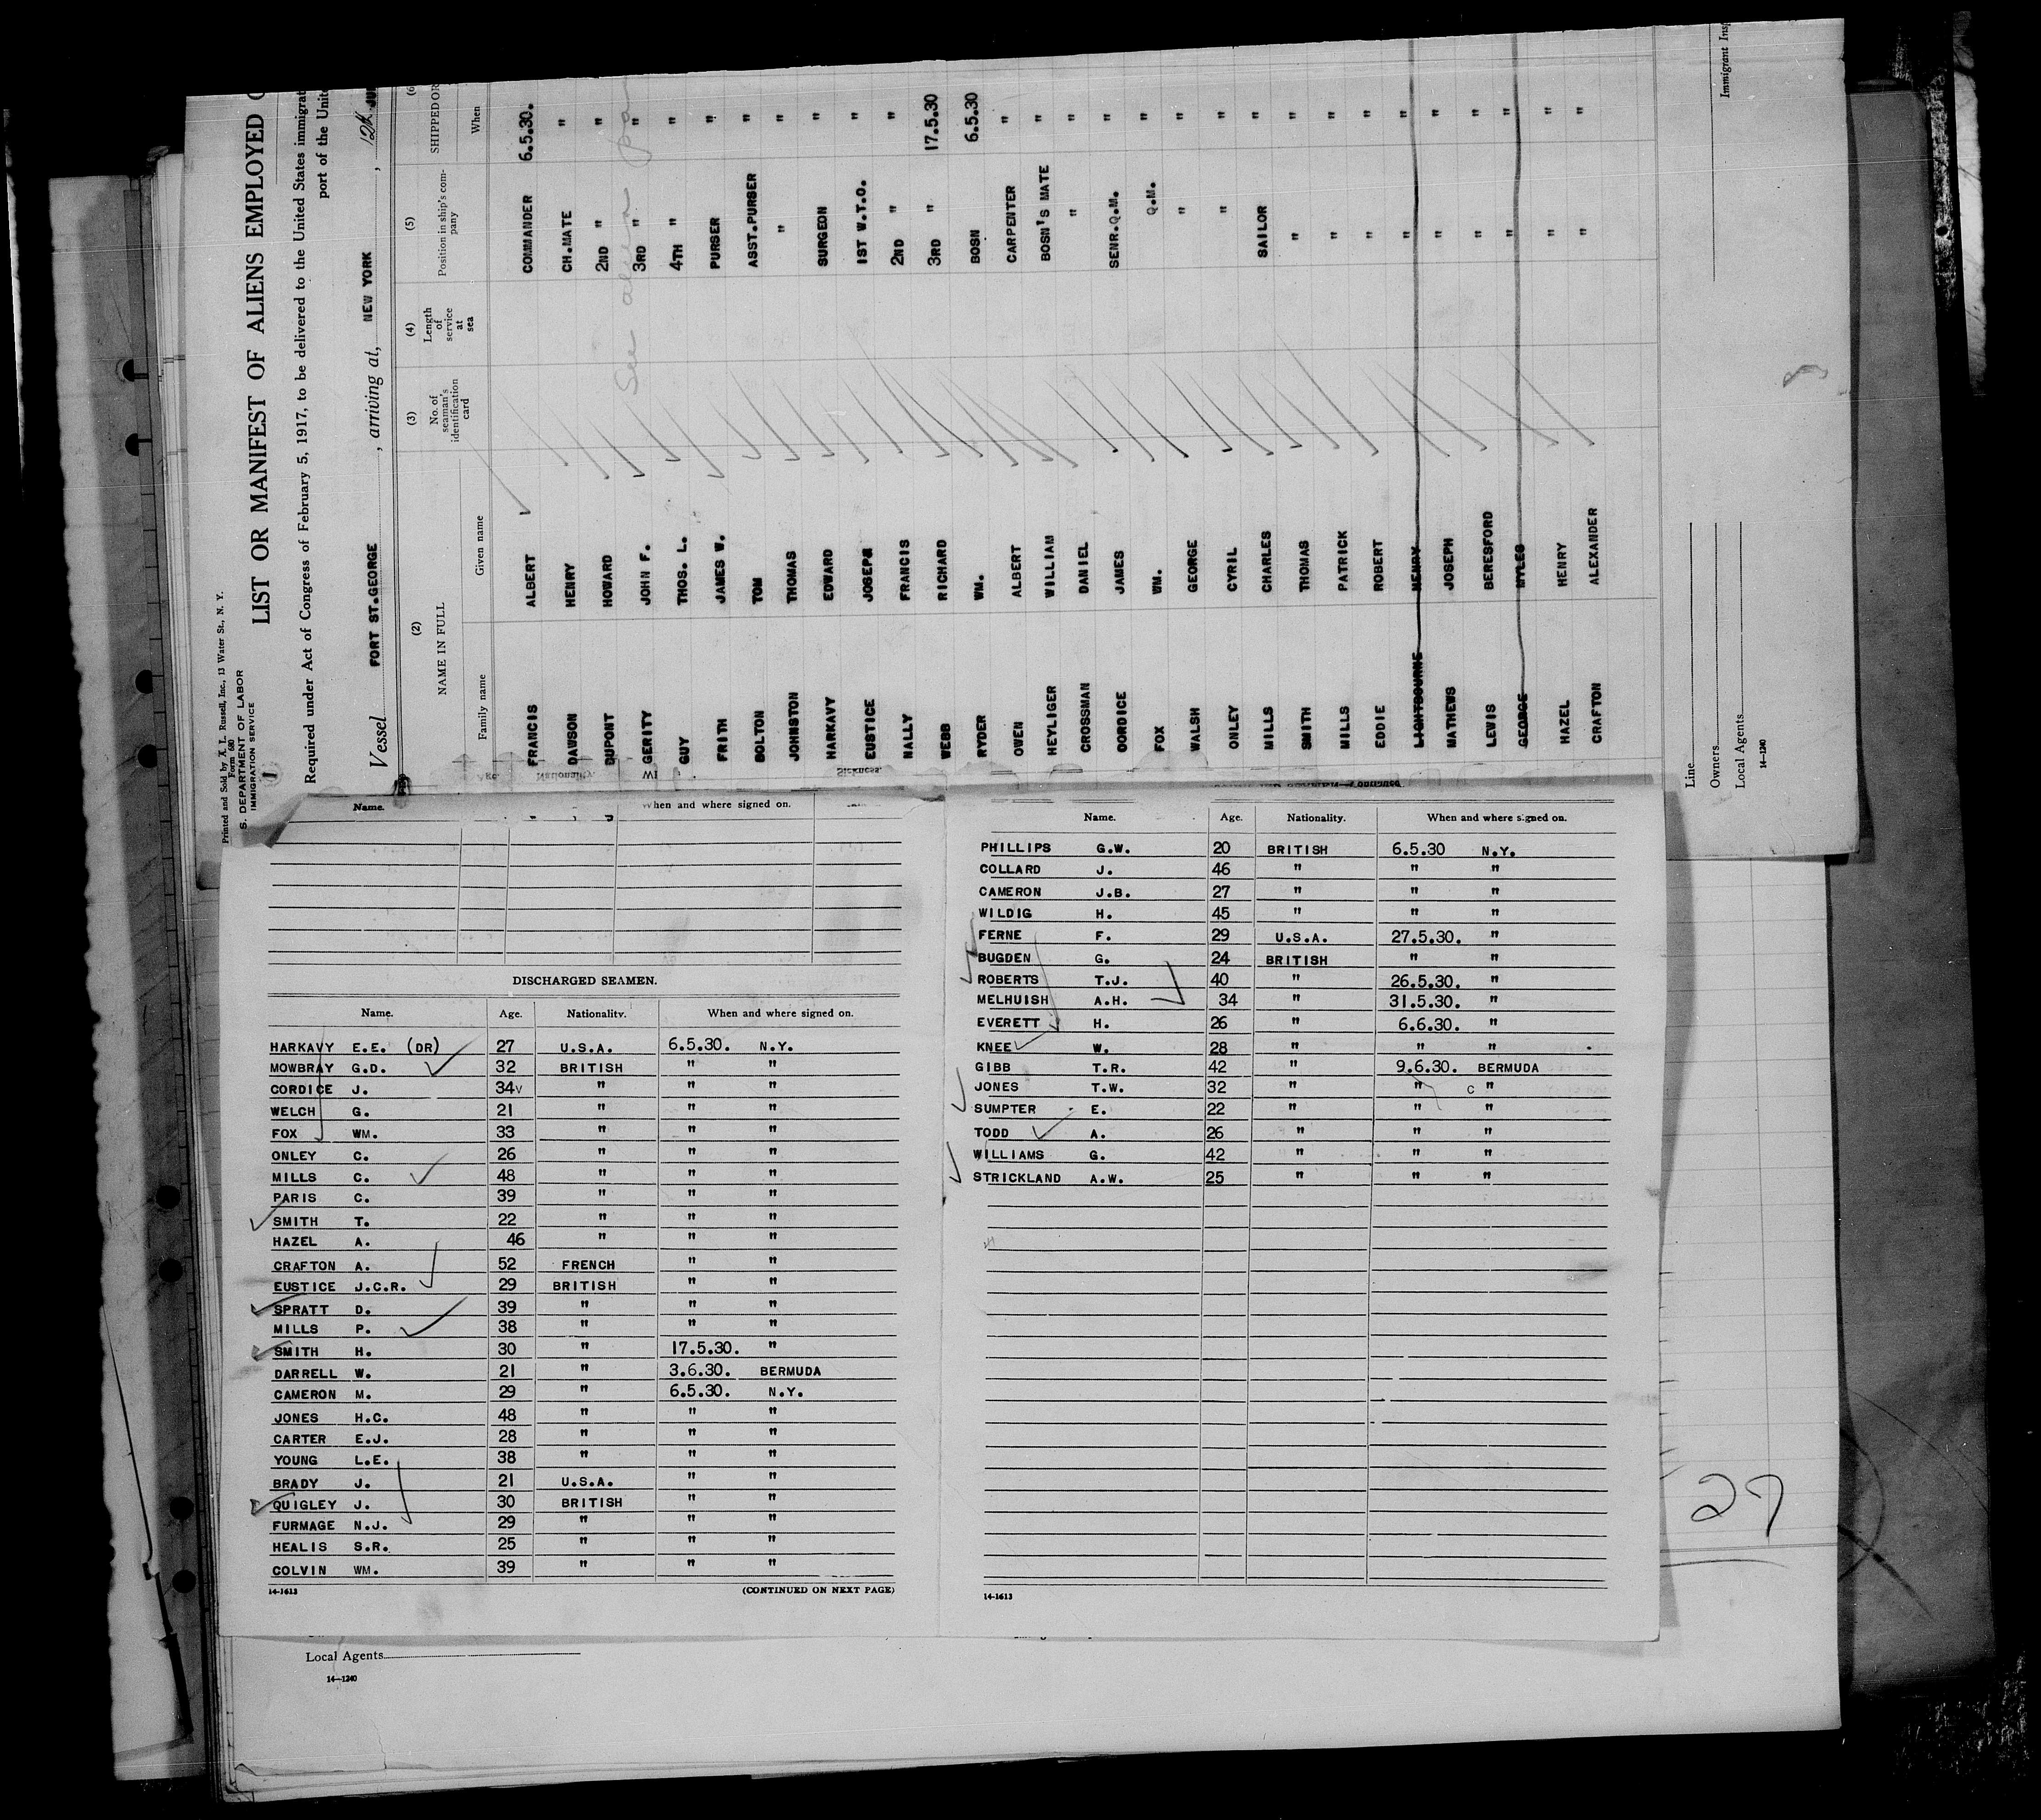 Printed and Sold by A. L. Russell, Inc., 13 Water St., N. Y.
Form 680
S. DEPARTMENT OF LABOR
IMMIGRATION SERVICE
1
LIST OR MANIFEST OF ALIENS EMPLOYED
Required under Act of Congress of February 5, 1917, to be delivered to the United States immigrat
port of the Unite
Vessel FORT ST.GEORGE, arriving at, NEW YORK, 12th JU
(2) (3) (4) (5) (6
NAME IN FULL No. of seaman's identification card Length of service at sea Position in ship's company SHIPPED OR
Family name Given name When
See alien
FRANCIS ALBERT COMMANDER 6.5.30.
DAWSON HENRY CH.MATE "
DUPONT HOWARD 2ND " "
GERITY JOHN F. 3RD " "
GUY THOS. L. 4TH " "
FRITH JAMES W. PURSER "
BOLTON TOM ASST.PURSER "
JOHNSTON THOMAS " "
HARKAVY EDWARD SURGEON "
EUSTICE JOSEPH 1ST W.T.O. "
NALLY FRANCIS 2ND " "
WEBB RICHARD 3RD " 17.5.30
RYDER WM. BOSN 6.5.30
OWEN ALBERT CARPENTER "
HEYLIGER WILLIAM BOSN'S MATE "
CROSSMAN DANIEL " "
CORDICE JAMES SENR.Q.M. "
FOX WM. Q.M. "
WALSH GEORGE " "
ONLEY CYRIL " "
MILLS CHARLES SAILOR "
SMITH THOMAS " "
MILLS PATRICK " "
EDDIE ROBERT " "
LIGHTBOURNE HENRY " "
MATHEWS JOSEPH " "
LEWIS BERESFORD " "
GEORGE MYLES " "
HAZEL HENRY " "
CRAFTON ALEXANDER " "
Line
Owners
Local Agents
14-1240
Immigrant Insp
Age. Nationality. Sickness.
Name. When and where signed on.
DISCHARGED SEAMEN.
Name. Age. Nationality. When and where signed on.
HARKAVY E.E. (DR) 27 U.S.A. 6.5.30. N.Y.
MOWBRAY G.D. 32 BRITISH " "
CORDICE J. 34 " " "
WELCH G. 21 " " "
FOX WM. 33 " " "
ONLEY C. 26 " " "
MILLS C. 48 " " "
PARIS C. 39 " " "
SMITH T. 22 " " "
HAZEL A. 46 " " "
CRAFTON A. 52 FRENCH " "
EUSTICE J.C.R. 29 BRITISH " "
SPRATT D. 39 " " "
MILLS P. 38 " " "
SMITH H. 30 " 17.5.30. "
DARRELL W. 21 " 3.6.30. BERMUDA
CAMERON M. 29 " 6.5.30. N.Y.
JONES H.C. 48 " " "
CARTER E.J. 28 " " "
YOUNG L.E. 38 " " "
BRADY J. 21 U.S.A. " "
QUIGLEY J. 30 BRITISH " "
FURMAGE N.J. 29 " " "
HEALIS S.R. 25 " " "
COLVIN WM. 39 " " "
14-1613 (CONTINUED ON NEXT PAGE)
Name. Age. Nationality. When and where signed on.
PHILLIPS G.W. 20 BRITISH 6.5.30 N.Y.
COLLARD J. 46 " " "
CAMERON J.B. 27 " " "
WILDIG H. 45 " " "
FERNE F. 29 U.S.A. 27.5.30. "
BUGDEN G. 24 BRITISH " "
ROBERTS T.J. 40 " 26.5.30. "
MELHUISH A.H. 34 " 31.5.30. "
EVERETT H. 26 " 6.6.30. "
KNEE W. 28 " " "
GIBB T.R. 42 " 9.6.30. BERMUDA
JONES T.W. 32 " " C "
SUMPTER E. 22 " " "
TODD A. 26 " " "
WILLIAMS G. 42 " " "
STRICKLAND A.W. 25 " " "
14-1613
27
Local Agents
14-1240